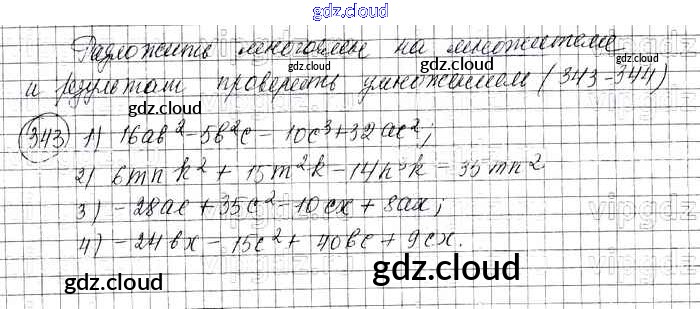 gdz.cloud
Разложить многочлен на множители
gdz.cloud
и результат проверить умножением (343-344)
gdz.cloud gdz.cloud
343) 1) 16ab² - 5b²c - 10c³ + 32ac²;
2) 6mnk² + 15m²k - 14n³k - 35mn²
3) - 28ac + 35c² - 10cx + 8ax;
4) - 24bx - 15c² + 40bc + 9cx.
gdz.cloud gdz.cloud gdz.cloud
gdz.cloud